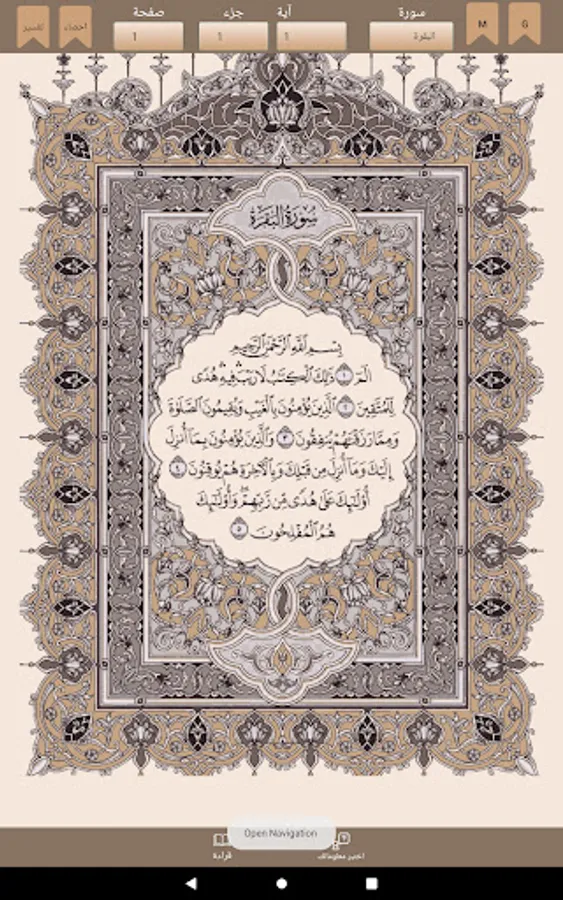 تفسير احصاء صفحة جزء آية سورة M G
1 1 1 البقرة
سُورَةُ البَقَرَةِ
بِسۡمِ ٱللَّهِ ٱلرَّحۡمَٰنِ ٱلرَّحِيمِ
الٓمٓ ١ ذَٰلِكَ ٱلۡكِتَٰبُ لَا رَيۡبَۛ فِيهِۛ هُدٗى
لِّلۡمُتَّقِينَ ٢ ٱلَّذِينَ يُؤۡمِنُونَ بِٱلۡغَيۡبِ وَيُقِيمُونَ ٱلصَّلَوٰةَ
وَمِمَّا رَزَقۡنَٰهُمۡ يُنفِقُونَ ٣ وَٱلَّذِينَ يُؤۡمِنُونَ بِمَآ أُنزِلَ
إِلَيۡكَ وَمَآ أُنزِلَ مِن قَبۡلِكَ وَبِٱلۡأٓخِرَةِ هُمۡ يُوقِنُونَ ٤
أُوْلَٰٓئِكَ عَلَىٰ هُدٗى مِّن رَّبِّهِمۡۖ وَأُوْلَٰٓئِكَ
هُمُ ٱلۡمُفۡلِحُونَ ٥
Open Navigation
قراءة اختبر معلوماتك